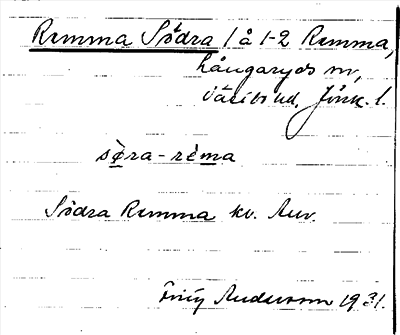 Remma Södra 1 å 1-2 Remma,
Långaryds sn,
Västbo hd. Jönk. l.
sø̀ra-rèma
Södra Remma kv.
Andersson 1931.